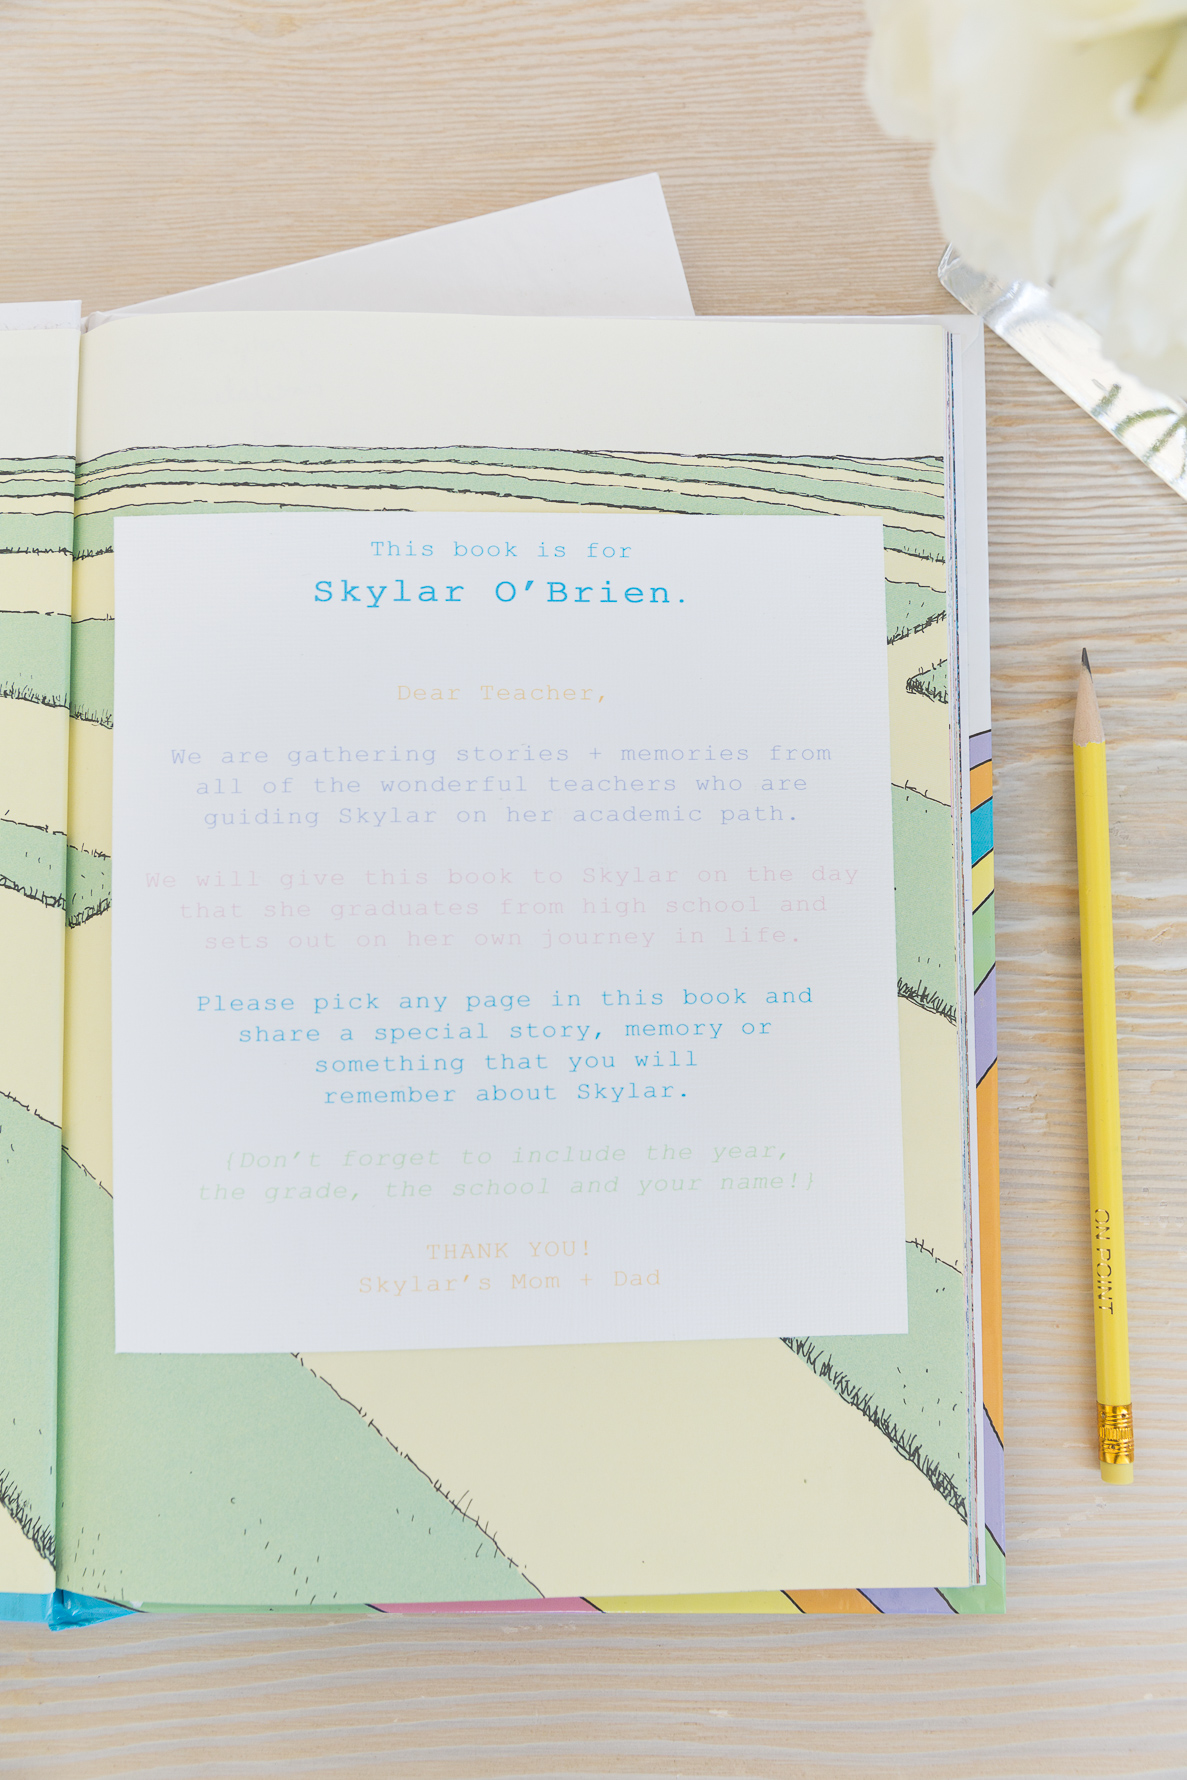 This book is for
Skylar O’Brien.
Dear Teacher,
We are gathering stories + memories from
all of the wonderful teachers who are
guiding Skylar on her academic path.
We will give this book to Skylar on the day
that she graduates from high school and
sets out on her own journey in life.
Please pick any page in this book and
share a special story, memory or
something that you will
remember about Skylar.
{Don’t forget to include the year,
the grade, the school and your name!}
THANK YOU!
Skylar’s Mom + Dad
ON POINT